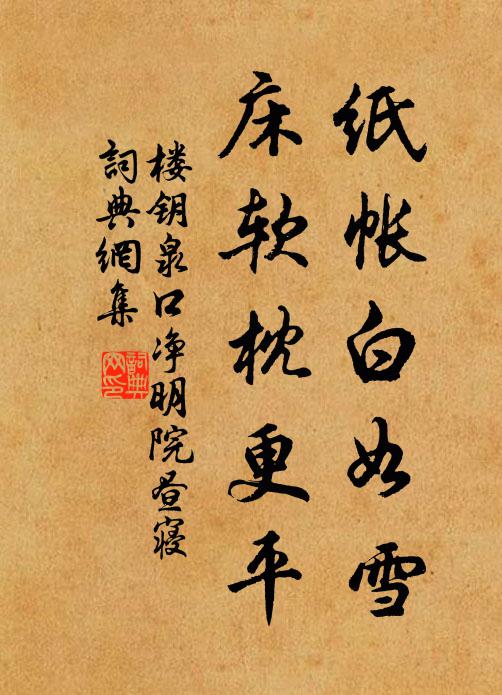 纸帐白如雪
床软枕更平
楼钥泉口净明院昼寝
詞典網集
詞典网印